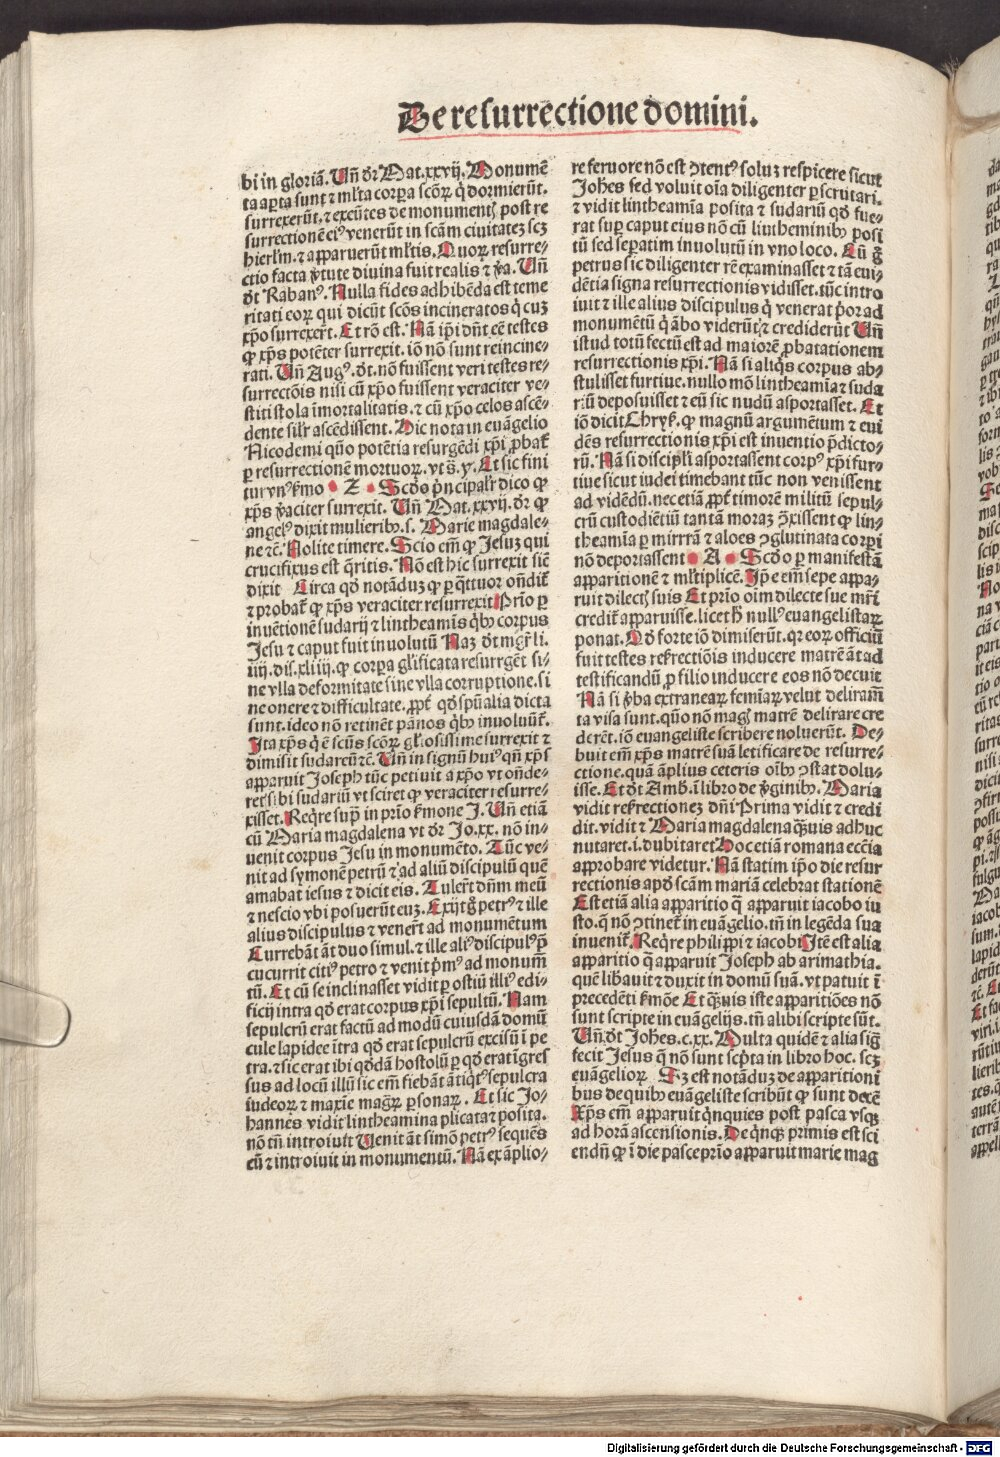 De resurrectione domini.
bi in gloriā. Vñ dr̄ Mat. xxvij. Monumē
ta aꝑta sunt ⁊ ml̓ta corꝑa scōꝝ q̇ dormierūt.
surrexerūt, ⁊ exeūtes de monumentꝭ post re
surrectionē eiꝰ venerūt in scām ciuitateꝫ scꝫ
hierl̓m. ⁊ aꝑparuerūt ml̓tis. Quoꝝ resurre-
ctio facta v̓tute diuina fuit realis ⁊ v̓a. Vñ
dt̄ Rabanꝰ. Nulla fides adhibēda est teme
ritati eoꝝ qui dicūt scōs incineratos q̇ cuꝫ
xp̄o surrexer̄t. Et rō est. Nā ip̄i dn̄t eē testes
ꝙ xp̄s potēter surrexit. iō nō sunt reincine-
rati. Vñ Augꝰ. dt̄. nō fuissent veri testes re-
surrectōis nisi cū xp̄o fuissent veraciter ve-
stiti stola īmortalitatis. ⁊ cū xp̄o celos ascē-
dente sil̓r ascēdissent. Hic nota in euāgelio
Nicodemi quō potētia resurgēdi xp̄i ꝓbat̄
ꝑ resurrectionē mortuoꝝ. vt s̄. y. Et sic fini
tur vnꝰ k̄mo • Z • Scd̄s p̓ncipal̓r dico ꝙ
xp̄s v̓aciter surrexit. Vñ Mat. xxvij. dr̄ ꝙ
angelꝰ dixit mulieribꝰ. s. Marie magdale-
ne ⁊c̄. Nolite timere. Scio em̄ ꝙ Jesuꝫ qui
crucifixus est q̄ritis. Nō est hic surrexit sic̄
dixit Circa qd̄ notāduꝫ ꝙ ꝑ q̄ttuor on̄dit̄
⁊ probat̄ ꝙ xp̄s veraciter resurrexit Prīo ꝑ
inuētionē sudarij ⁊ lintheamīs q̇bꝰ corpus
Jesu ⁊ caput fuit inuolutū Naꝫ dt̄ mgr̄ li.
iiij. dis. xliiij. ꝙ corꝑa gl̓ificata resurrgēt si-
ne vlla deformitate sine vlla corruptione. si
ne onere ⁊ difficultate. ꝓpt̄ qd̄ spūalia dicta
sunt. ideo nō retinēt pānos q̇bꝰ inuoluūt̄.
Ita xp̄s q̇ ē scūs scōꝝ gl̓iosissime surrexit ⁊
dimisit sudareū ⁊c̄. Vñ in signū huiꝰ qn̄ xp̄s
aꝑparuit Joseph tūc petiuit a xp̄o vt on̄de-
ret sibi sudariū vt sciret ꝙ veraciter resurre-
xisset. Req̄re supͣ in prīo k̄mone J. Vñ etiā
cū Maria magdalena vt dr̄ Jo. xx. nō in-
uenit corpus Jesu in monumēto. Tūc ve-
nit ad symonē petrū ⁊ ad aliū discipulū quē
amabat iesus ⁊ dicit eis. Tuler̄t dn̄m meū
⁊ nescio vbi posuerūt euꝫ. Exijt gͦ petrꝰ ⁊ ille
alius discipulus ⁊ vener̄t ad monumētum
Currebāt āt duo simul. ⁊ ille aliꝰ discipulꝰ p̄
cucurrit citiꝰ petro ⁊ venit p̓mꝰ ad monum̄
tū. Et cū se inclinasset vidit ꝑ ostiū illiꝰ edi-
ficij intra qd̄ erat corpus xp̄i sepultū. Nam
sepulcrū erat factū ad modū cuiusdā domū
cule lapidee ītra qd̄ erat sepulcrū excisū ī pe
tra. ⁊ sic erat ibi qd̄dā hostolū ꝑ qd̄ erat īgres
sus ad locū illū sic em̄ fiebāt ātiq̇tꝰ sepulcra
iudeoꝝ ⁊ maxīe mag̓ꝝ ꝑsonaꝝ. Et sic Jo-
hannes vidit lintheamina plicata ⁊ posita.
nō tn̄ introiuit Venit āt simō petrꝰ sequēs
eū ⁊ introiuit in monumentū. Nā ex āplio-
re feruore nō est ꝯtentꝰ soluꝫ respicere sicut
Johes sed voluit oīa diligenter ꝑscrutari.
⁊ vidit lintheamīa posita ⁊ sudariū qd̄ fue-
rat suꝑ caput eius nō cū lintheminibꝰ posi
tū sed seꝑatim inuolutū in vno loco. Cū gͦ
petrus sic diligenter rē examinasset ⁊ tā eui-
dētia signa resurrectionis vidisset. tūc intro
iuit ⁊ ille alius discipulus q̇ venerat p̓or ad
monumētū q̇ ābo viderūt ⁊ crediderūt Vñ
istud totū fectū est ad maiorē ꝓbatationem
resurrectionis xp̄i. Nā si aliq̇s corpus ab-
stulisset furtiue. nullo mō lintheamīa ⁊ suda
riū deposuisset ⁊ eū sic nudū asportasset. Et
iō dicit Chryẜ. ꝙ magnū argumētum ⁊ eui
dēs resurrectionis xp̄i est inuentio p̄dicto-
rū. Nā si discipl̓i asportassent corpꝰ xp̄i fur-
tiue sicut iudei timebant tūc non venissent
ad vidēdū. nec etiā ꝓpt̄ timorē militū sepul-
crū custodiētiū tantā moraꝫ ꝯxissent ꝙ lin-
theamīa ꝑ mirrrā ⁊ aloes ꝯglutinata corꝑi
nō deportassent • A • Scd̄o ꝑ manifestā
aꝑparitionē ⁊ ml̓tiplicē. Ip̄e em̄ sepe aꝑpa-
ruit dilectꝭ suis Et prīo oīm dilecte sue mr̄i
credit̄ aꝑparuisse. licet h̄ nullꝰ euangelistaꝝ
ponat. Qd̄ forte iō dimiserūt. qꝛ eoꝝ officiū
fuit testes resr̄rectiōis inducere matrē āt ad
testificandū ꝓ filio inducere eos nō decuit
Nā si v̓ba extraneaꝝ femīaꝝ velut deliram̄
ta visa sunt. quō nō magꝭ matrē delirare cre
derēt. iō euangeliste scribere noluerūt. De-
buit em̄ xp̄s matrē suā letificare de resurre-
ctione. quā āplius ceteris oībꝰ ꝯstat dolu-
isse. Et dt̄ Amb. ī libro de v̓ginibꝰ. Maria
vidit resr̄rectioneꝫ dn̄i Prima vidit ⁊ credi
dit. vidit ⁊ Maria magdalena q̄uis adhuc
nutaret. i. dubitaret Hoc etiā romana ecclīa
aꝑprobare videtur. Nā statim ip̄o die resur
rectionis apd̄ scām mariā celebrat stationē
Est etiā alia aꝑparitio q̄ aꝑparuit iacobo iu
sto. q̄ nō ꝯtinet̄ in euāgelio. tn̄ in legēda sua
inuenit̄. Req̄re philiꝑpi ⁊ iacobi Itē est alia
aꝑparitio q̄ aꝑparuit Joseph ab arimathia.
quē libauit ⁊ duxit in domū suā. vt patuit ī
p̄cedēti k̄mōe Et q̄uis iste aꝑparitiōes nō
sunt scripte in euāgelijs. tn̄ alibi scripte sūt.
Vñ dt̄ Johēs. c. xx. Multa quidē ⁊ alia siḡ
fecit Jesus q̄ nō sunt scp̄ta in libro hoc. scꝫ
euāgelioꝝ Sꝫ est notāduꝫ de aꝑparitioni
bus de quibꝰ euāgeliste scribūt ꝙ sunt decē
Xp̄s em̄ aꝑparuit q̇nquies post pasca vsqꝫ
ad horā ascensionis. De q̇nqꝫ primis est sci
endū ꝙ ī die pasce prīo aꝑparuit marie mag
Digitalisierung gefördert durch die Deutsche Forschungsgemeinschaft - DFG